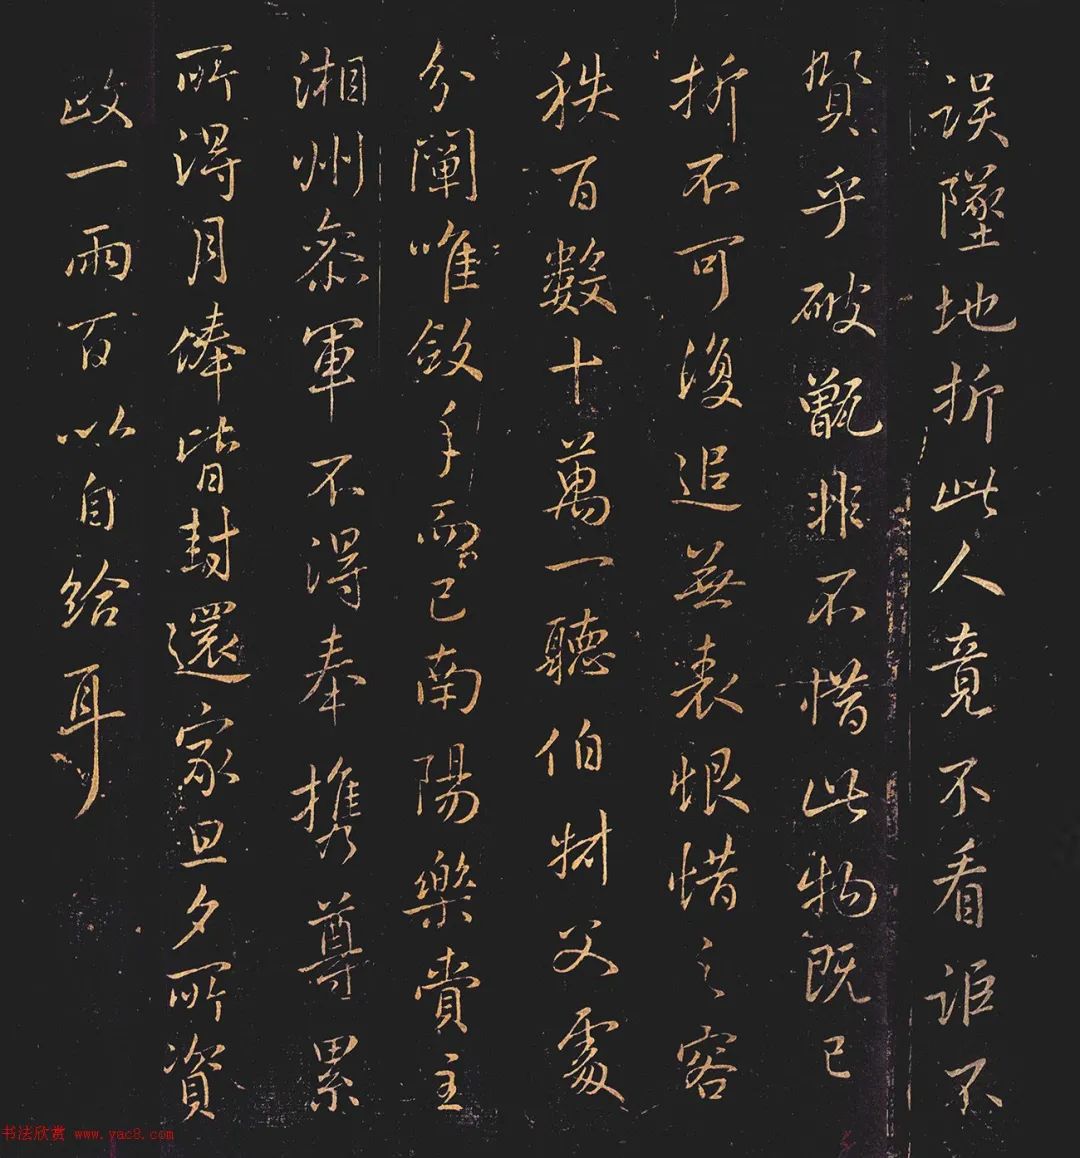 误墜地折此人竟不看詎不
賢乎破甑非不惜此物既已
折不可復追無表恨惜之容
秩百數十萬一聽伯財父處
分闡唯斂手而已南陽樂賞主
湘州參軍不得奉攜尊累
所得月俸皆封還家旦夕所資
政一兩百以自給耳
书法欣赏 www.yac8.com